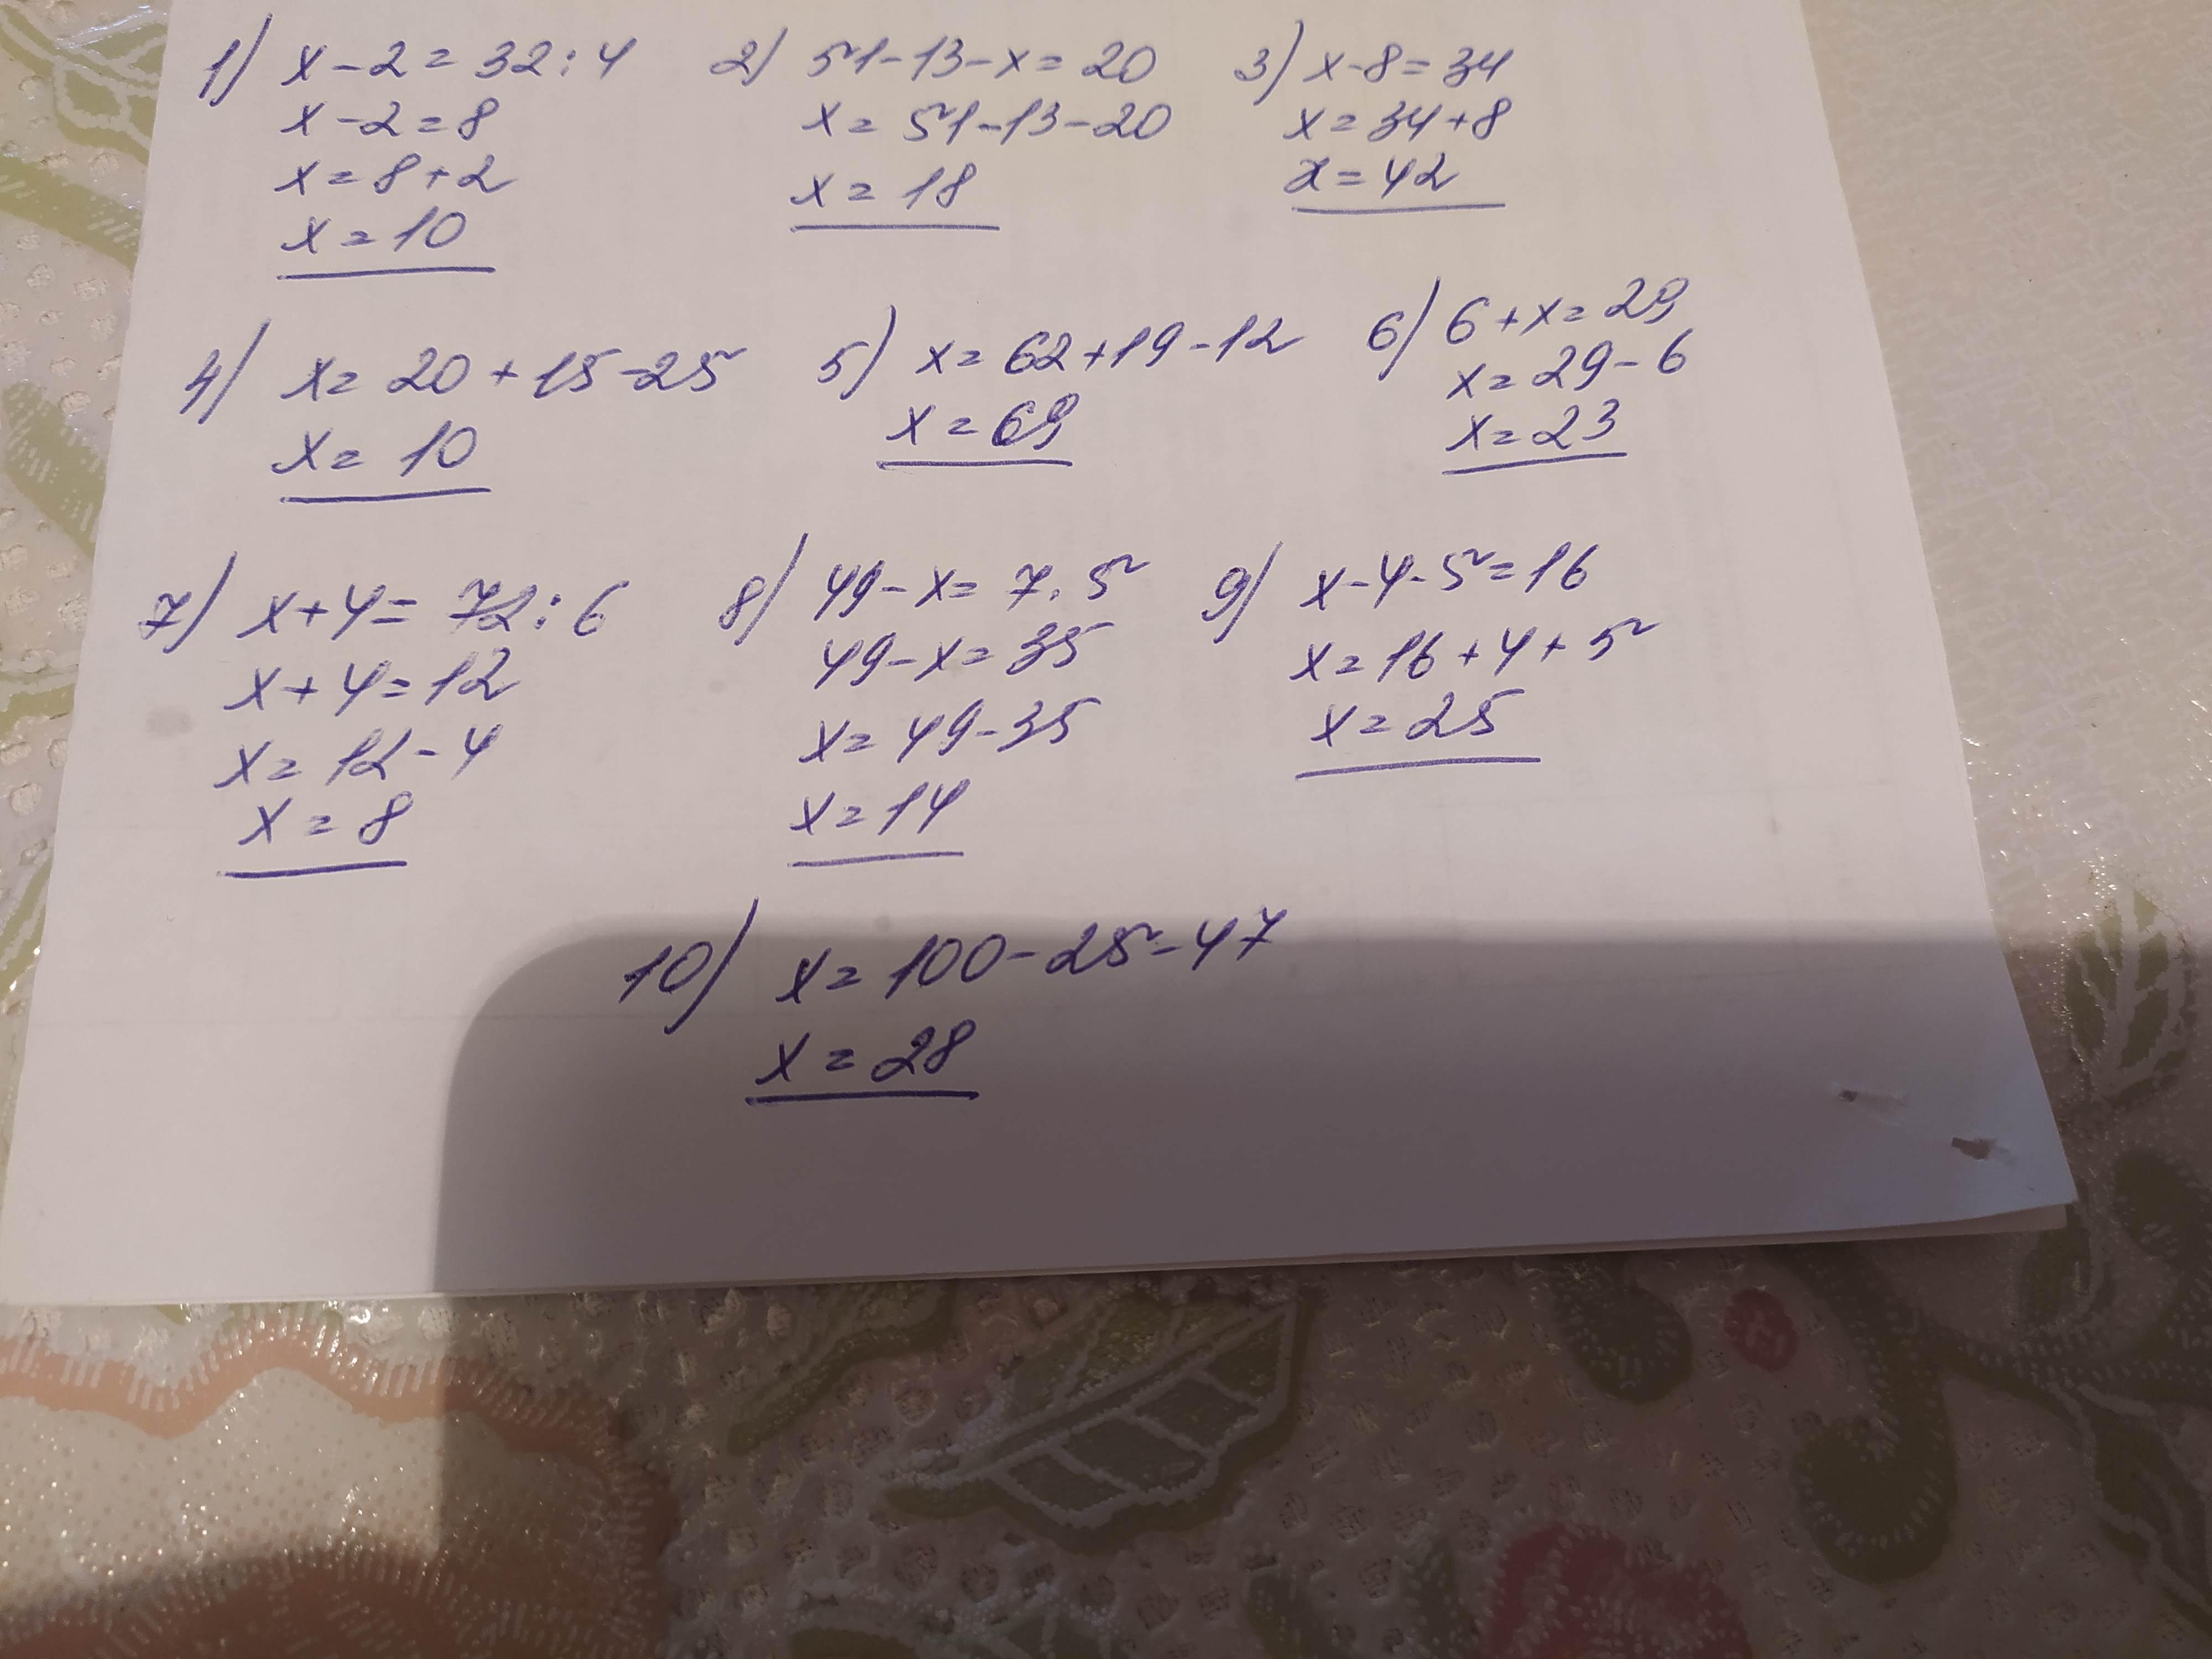 1) x-2=32:4
x-2=8
x=8+2
x=10
2) 51-13-x=20
x=51-13-20
x=18
3) x-8=34
x=34+8
x=42
4) x=20+15-25
x=10
5) x=62+19-12
x=69
6) 6+x=29
x=29-6
x=23
7) x+4=72:6
x+4=12
x=12-4
x=8
8) 49-x=7.5
49-x=35
x=49-35
x=14
9) x-4-5=16
x=16+4+5
x=25
10) x=100-25-47
x=28